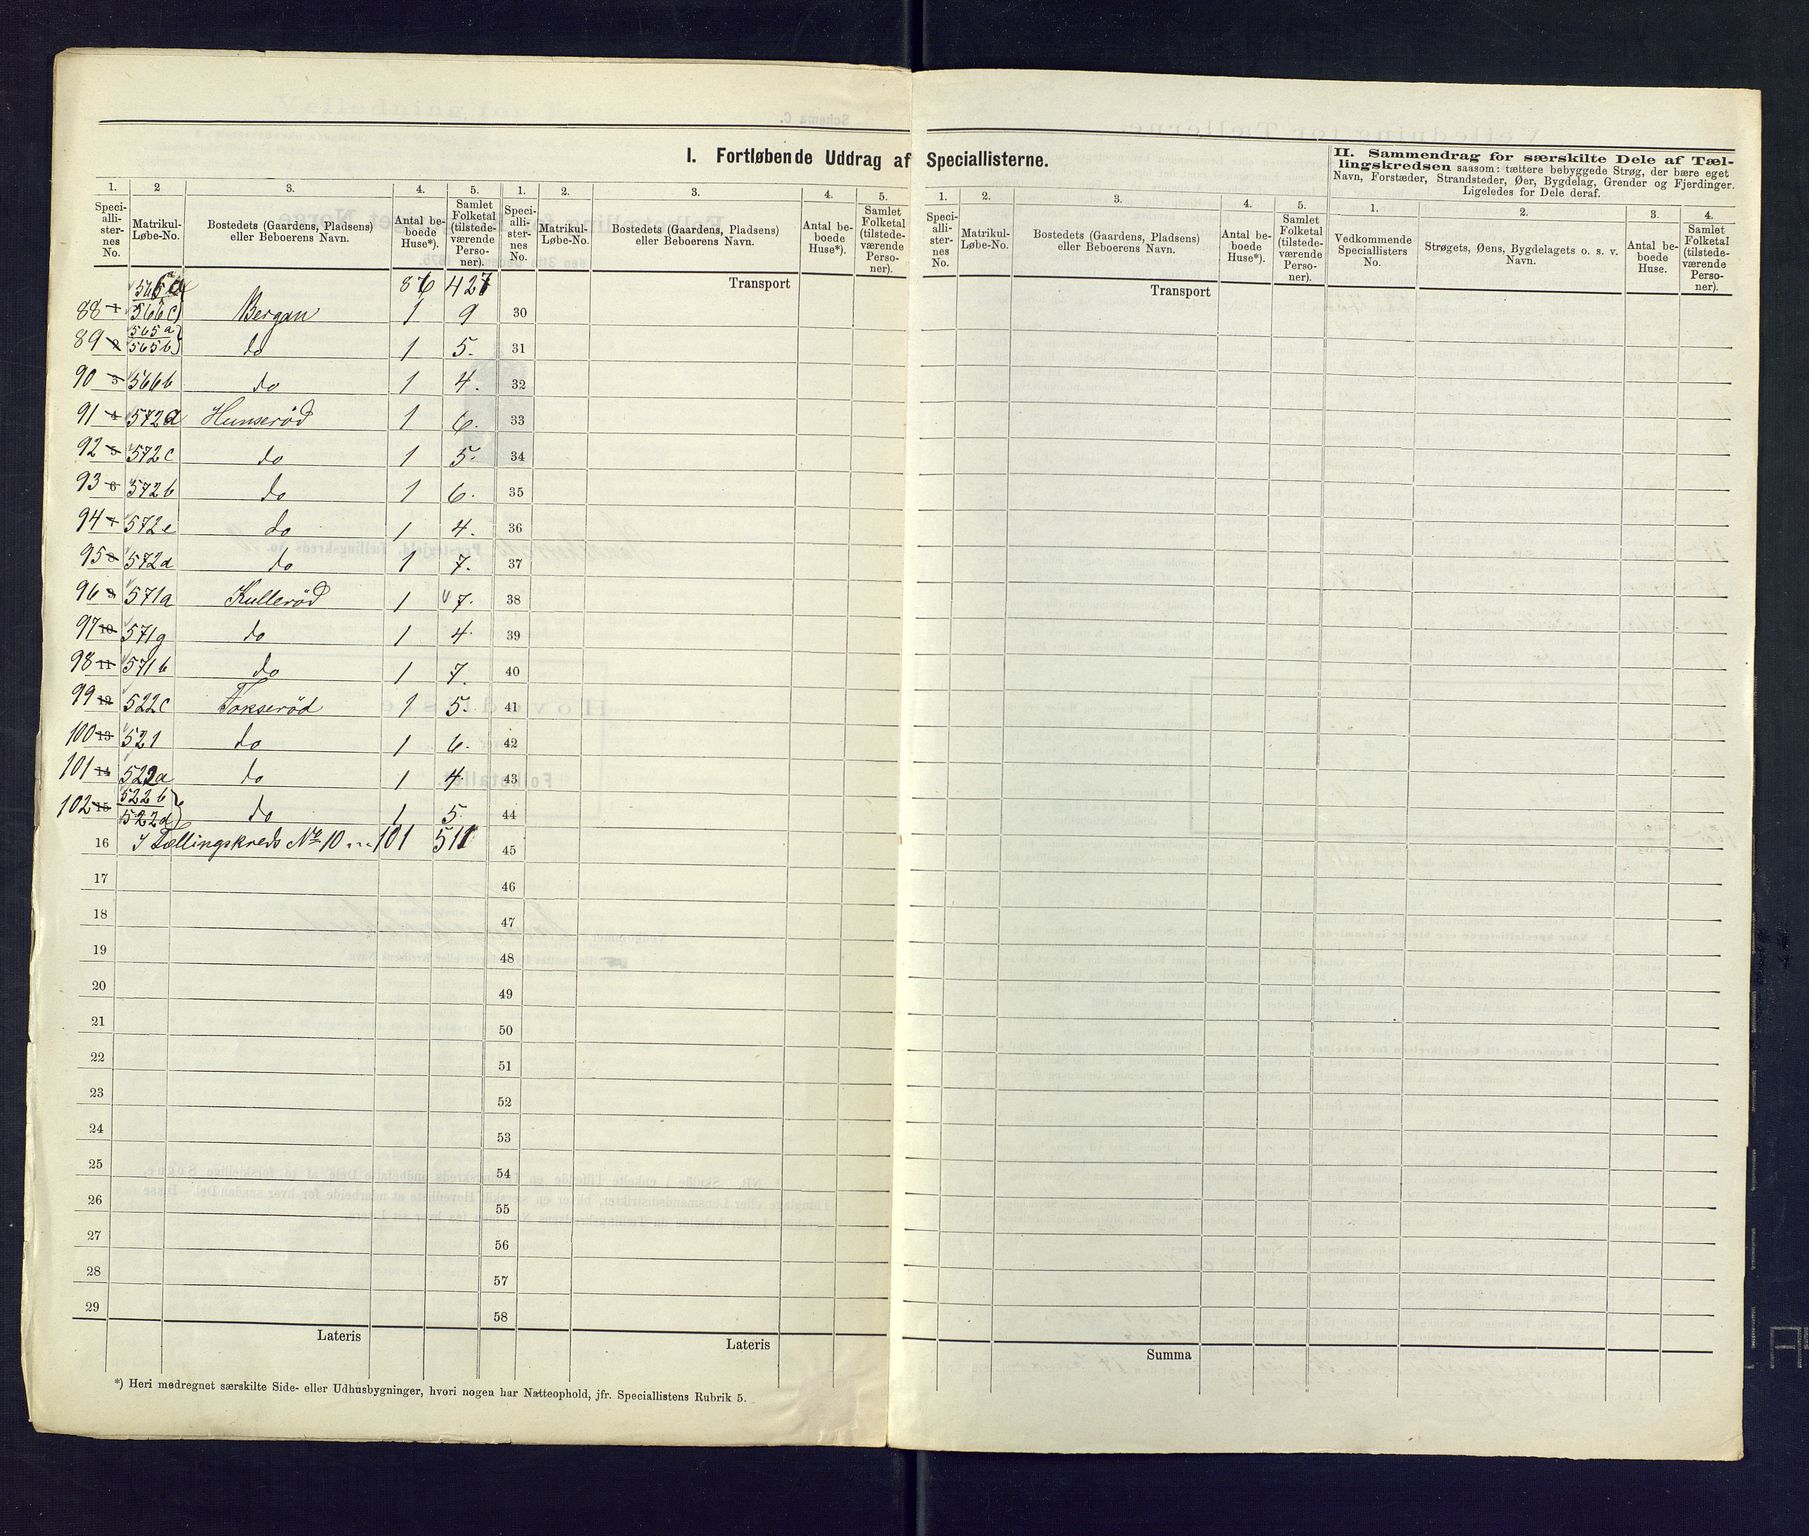 I. Fortløbende Uddrag af Speciallisterne.
II. Sammendrag for særskilte Dele af Tællingskredsen saasom: tættere bebyggede Strøg, der bære eget
Navn, Forstæder, Strandsteder, Øer, Bygdelag, Grender og Fjerdinger.
Ligeledes for Dele deraf.
1. 2 3. 4. 5. 1. 2. 3. 4. 5. 1. 2. 3. 4. 5. 1. 2. 3. 4.
Speciallisternes No. Matrikul-Løbe-No. Bostedets (Gaardens, Pladsens) eller Beboerens Navn. Antal beboede Huse*). Samlet Folketal (tilstedeværende Personer).
Speciallisternes No. Matrikul-Løbe-No. Bostedets (Gaardens, Pladsens) eller Beboerens Navn. Antal beboede Huse*). Samlet Folketal (tilstedeværende Personer).
Speciallisternes No. Matrikul-Løbe-No. Bostedets (Gaardens, Pladsens) eller Beboerens Navn. Antal beboede Huse*). Samlet Folketal (tilstedeværende Personer).
Vedkommende Speciallisters No. Strøgets, Øens, Bygdelagets o. s. v. Navn. Antal beboede Huse. Samlet Folketal (tilstedeværende Personer).
86 427 Transport Transport
88 1 566c Bergan 1 9 30
89 2 565a 565b do 1 5. 31
90 3 566b do 1 4. 32
91 4 572d Hunserød 1 6. 33
92 5 572c do 1 5. 34
93 6 572b do 1 6. 35
94 7 572e do 1 4. 36
95 8 572a do 1 7. 37
96 9 571a Kullerød 1 7. 38
97 10 571g do 1 4. 39
98 11 571b do 1 7. 40
99 12 522c Fokserød 1 5. 41
100 13 521 do 1 6. 42
101 14 522a do 1 4 43
102 15 522b 522d do 1 5 44
16 I Tællingskreds No 10 ... 101 511 45
17 46
18 47
19 48
20 49
21 50
22 51
23 52
24 53
25 54
26 55
27 56
28 57
29 58
Lateris Lateris Summa
*) Heri medregnet særskilte Side- eller Udhusbygninger, hvori nogen har Natteophold, jfr. Speciallistens Rubrik 5.